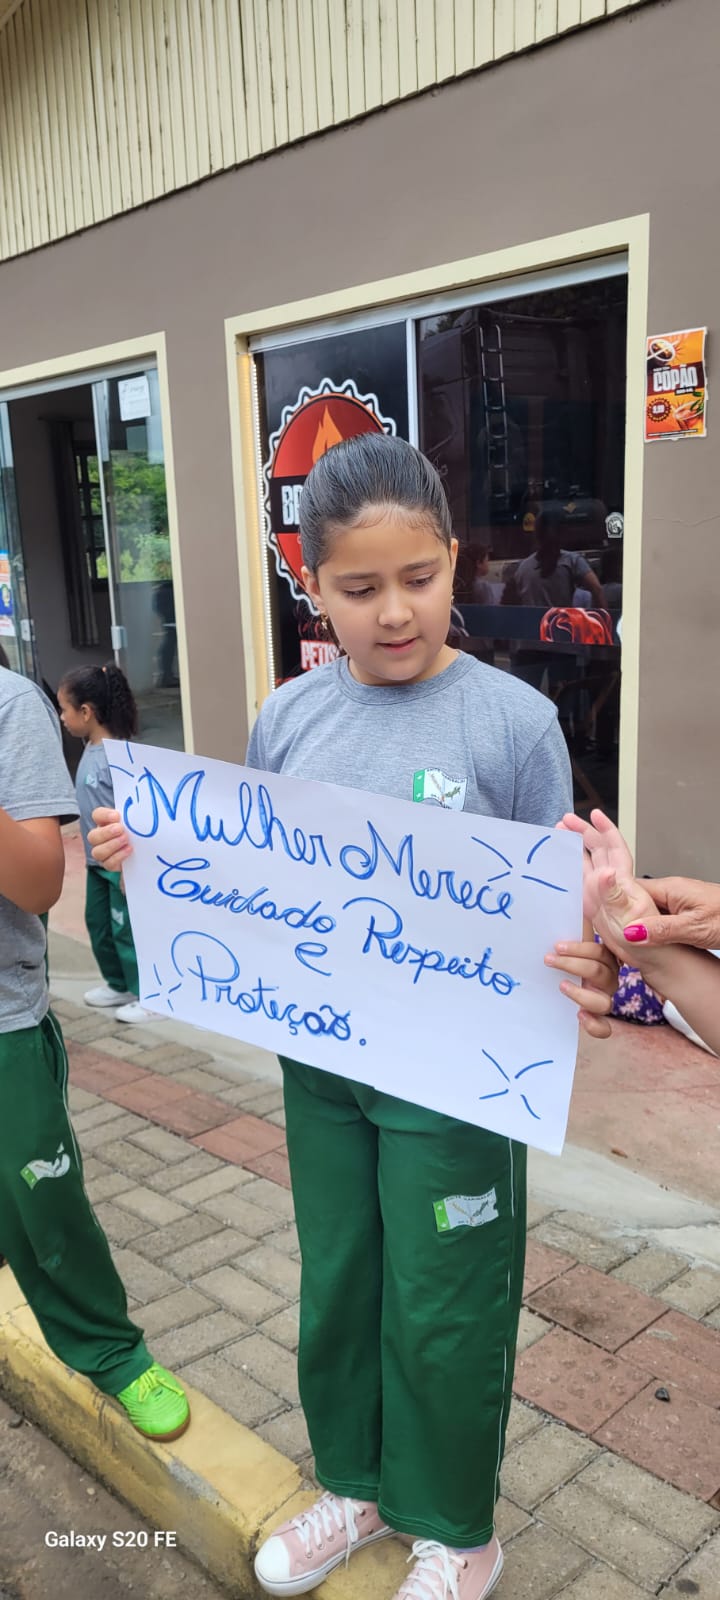 COPÃO
Mulher Merece
Cuidado Respeito
e
Proteção.
Galaxy S20 FE